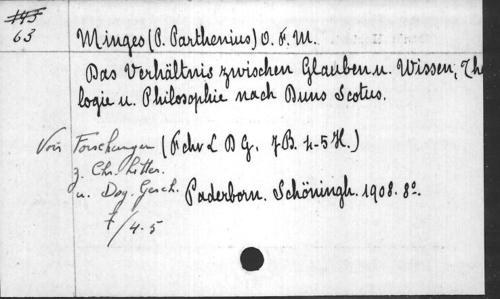 143
63
Minges (P. Parthenius) O. F. M.
Das Verhältnis zwischen Glauben u. Wissen, Theo
logie u. Philosophie nach Duns Scotus.
Von Forschungen (F chr L D G, 7 B. 4-5 H.)
z. Chr. Litter.
u. Dog. Gesch. Paderborn. Schöningh. 1908. 8°.
7/4-5